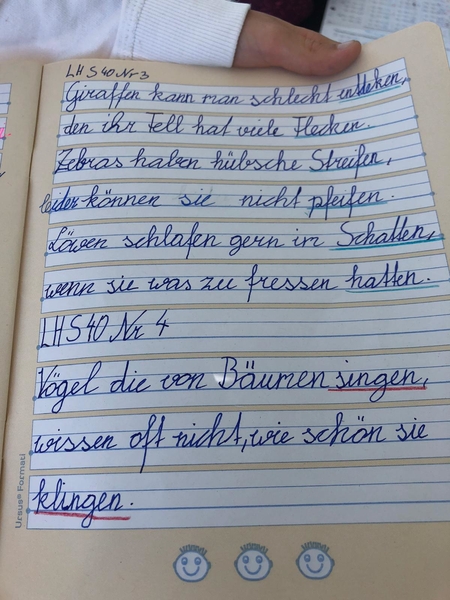 LHS40 Nr 3
Giraffen kann man schlecht entdeken,
den ihr Fell hat viele Flecken.
Zebras haben hübsche Streifen,
leider können sie nicht pfeifen.
Löwen schlafen gern im Schatten,
wenn sie was zu fressen hatten.
LHS40 Nr 4
Vögel die von Bäumen singen,
wissen oft nicht, wie schön sie
klingen.
Ursus® Formati